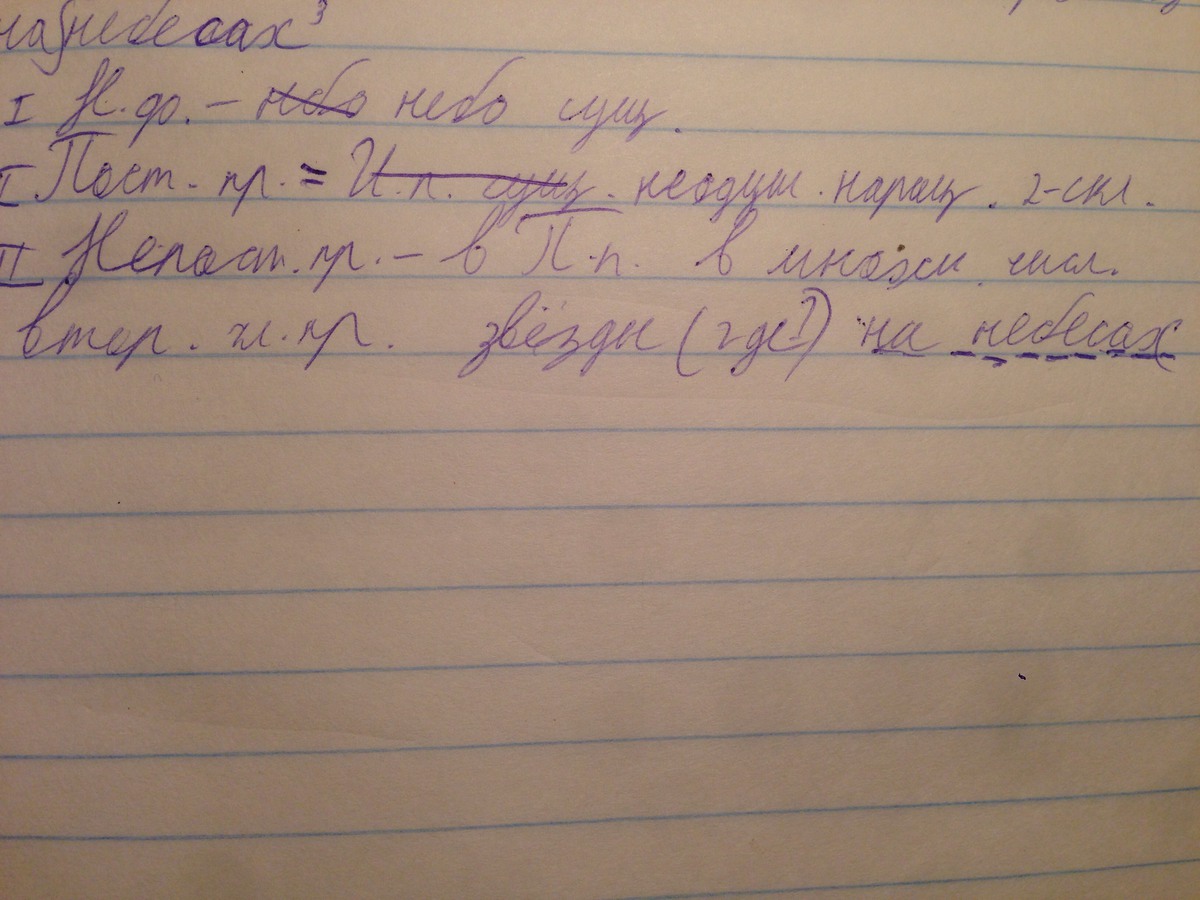 на небесах³
I Н.ф. – небо небо сущ.
I Пост. пр. = И.п. сущ. неодуш. нариц. 2-скл.
II Непост. пр. – в П.п. в множ. числ.
втор. чл. пр. звёзды (где?) на небесах